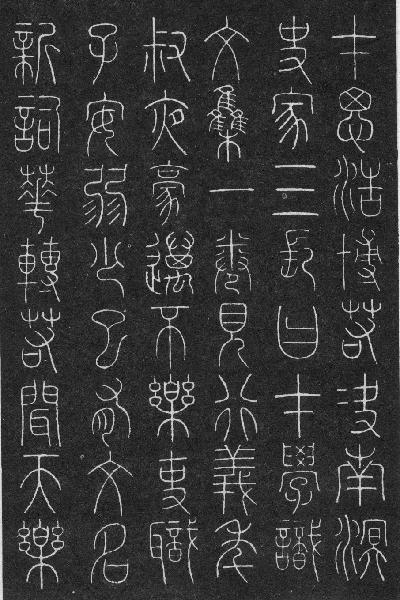 才思浩博若決南溟
史家三長曰才學識
文集一卷見行義年
叔夜豪邁不樂吏職
子安弱少已有文名
新詞華轉若聞天樂